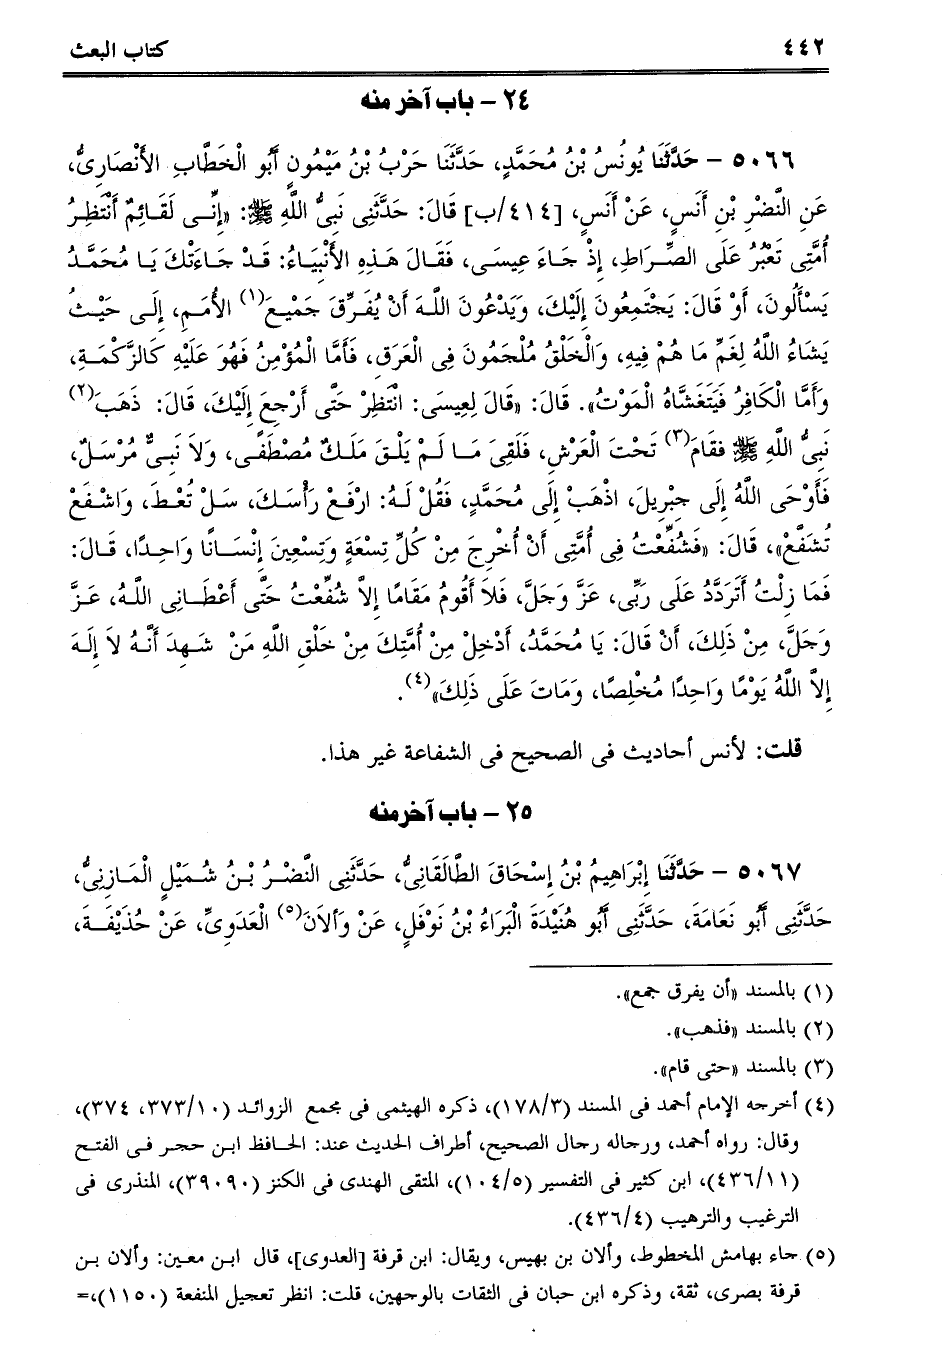 ٤٤٢ كتاب البعث
٢٤ - باب آخر منه
٥٠٦٦ - حَدَّثَنَا يُونُسُ بْنُ مُحَمَّدٍ، حَدَّثَنَا حَرْبُ بْنُ مَيْمُونٍ أَبُو الْخَطَّابِ الأَنْصَارِىُّ،
عَنِ النَّضْرِ بْنِ أَنَسٍ، عَنْ أَنَسٍ، [٤١٤/ب] قَالَ: حَدَّثَنِى نَبِىُّ اللَّهِ ﷺ: «إِنِّى لَقَائِمٌ أَنْتَظِرُ
أُمَّتِى تَعْبُرُ عَلَى الصِّرَاطِ، إِذْ جَاءَ عِيسَى، فَقَالَ هَذِهِ الأَنْبِيَاءُ: قَدْ جَاءَتْكَ يَا مُحَمَّدُ
يَسْأَلُونَ، أَوْ قَالَ: يَجْتَمِعُونَ إِلَيْكَ، وَيَدْعُونَ اللَّهَ أَنْ يُفَرِّقَ جَمِيْعَ(١) الأُمَمِ، إِلَى حَيْثُ
يَشَاءُ اللَّهُ لِغَمِّ مَا هُمْ فِيهِ، وَالْخَلْقُ مُلْجَمُونَ فِى الْعَرَقِ، فَأَمَّا الْمُؤْمِنُ فَهُوَ عَلَيْهِ كَالزَّكْمَةِ،
وَأَمَّا الْكَافِرُ فَيَتَغَشَّاهُ الْمَوْتُ». قَالَ: «قَالَ لِعِيسَى: انْتَظِرْ حَتَّى أَرْجِعَ إِلَيْكَ، قَالَ: ذَهَبَ(٢)
نَبِىُّ اللَّهِ ﷺ فَقَامَ(٣) تَحْتَ الْعَرْشِ، فَلَقِىَ مَا لَمْ يَلْقَ مَلَكٌ مُصْطَفًى، وَلاَ نَبِىٌّ مُرْسَلٌ،
فَأَوْحَى اللَّهُ إِلَى جِبْرِيلَ، اذْهَبْ إِلَى مُحَمَّدٍ، فَقُلْ لَهُ: ارْفَعْ رَأْسَكَ، سَلْ تُعْطَ، وَاشْفَعْ
تُشَفَّعْ»، قَالَ: «فَشُفِّعْتُ فِى أُمَّتِى أَنْ أُخْرِجَ مِنْ كُلِّ تِسْعَةٍ وَتِسْعِينَ إِنْسَانًا وَاحِدًا، قَالَ:
فَمَا زِلْتُ أَتَرَدَّدُ عَلَى رَبِّى، عَزَّ وَجَلَّ، فَلاَ أَقُومُ مَقَامًا إِلاَّ شُفِّعْتُ حَتَّى أَعْطَانِى اللَّهُ، عَزَّ
وَجَلَّ، مِنْ ذَلِكَ، أَنْ قَالَ: يَا مُحَمَّدُ، أَدْخِلْ مِنْ أُمَّتِكَ مِنْ خَلْقِ اللَّهِ مَنْ شَهِدَ أَنَّهُ لاَ إِلَهَ
إِلاَّ اللَّهُ يَوْمًا وَاحِدًا مُخْلِصًا، وَمَاتَ عَلَى ذَلِكَ»(٤).
قلت: لأنس أحاديث فى الصحيح فى الشفاعة غير هذا.
٢٥ - باب آخر منه
٥٠٦٧ - حَدَّثَنَا إِبْرَاهِيمُ بْنُ إِسْحَاقَ الطَّالَقَانِىُّ، حَدَّثَنِى النَّضْرُ بْنُ شُمَيْلٍ الْمَازِنِىُّ،
حَدَّثَنِى أَبُو نَعَامَةَ، حَدَّثَنِى أَبُو هُنَيْدَةَ الْبَرَاءُ بْنُ نَوْفَلٍ، عَنْ وَالاَنَ(٥) الْعَدَوِىِّ، عَنْ حُذَيْفَةَ،
(١) بالمسند «أن يفرق جمع».
(٢) بالمسند «فذهب».
(٣) بالمسند «حتى قام».
(٤) أخرجه الإمام أحمد فى المسند (١٧٨/٣)، ذكره الهيثمى فى مجمع الزوائد (٣٧٣/١٠، ٣٧٤)،
وقال: رواه أحمد، ورجاله رجال الصحيح، أطراف الحديث عند: الحافظ ابن حجر فى الفتح
(٤٣٦/١١)، ابن كثير فى التفسير (١٠٤/٥)، المتقى الهندى فى الكنز (٣٩٠٩٠)، المنذرى فى
الترغيب والترهيب (٤٣٦/٤).
(٥) جاء بهامش المخطوط، وألان بن بهيس، ويقال: ابن قرفة [العدوى]، قال ابن معين: وألان بن
قرفة بصرى، ثقة، وذكره ابن حبان فى الثقات بالوجهين، قلت: انظر تعجيل المنفعة (١١٥٠)،=